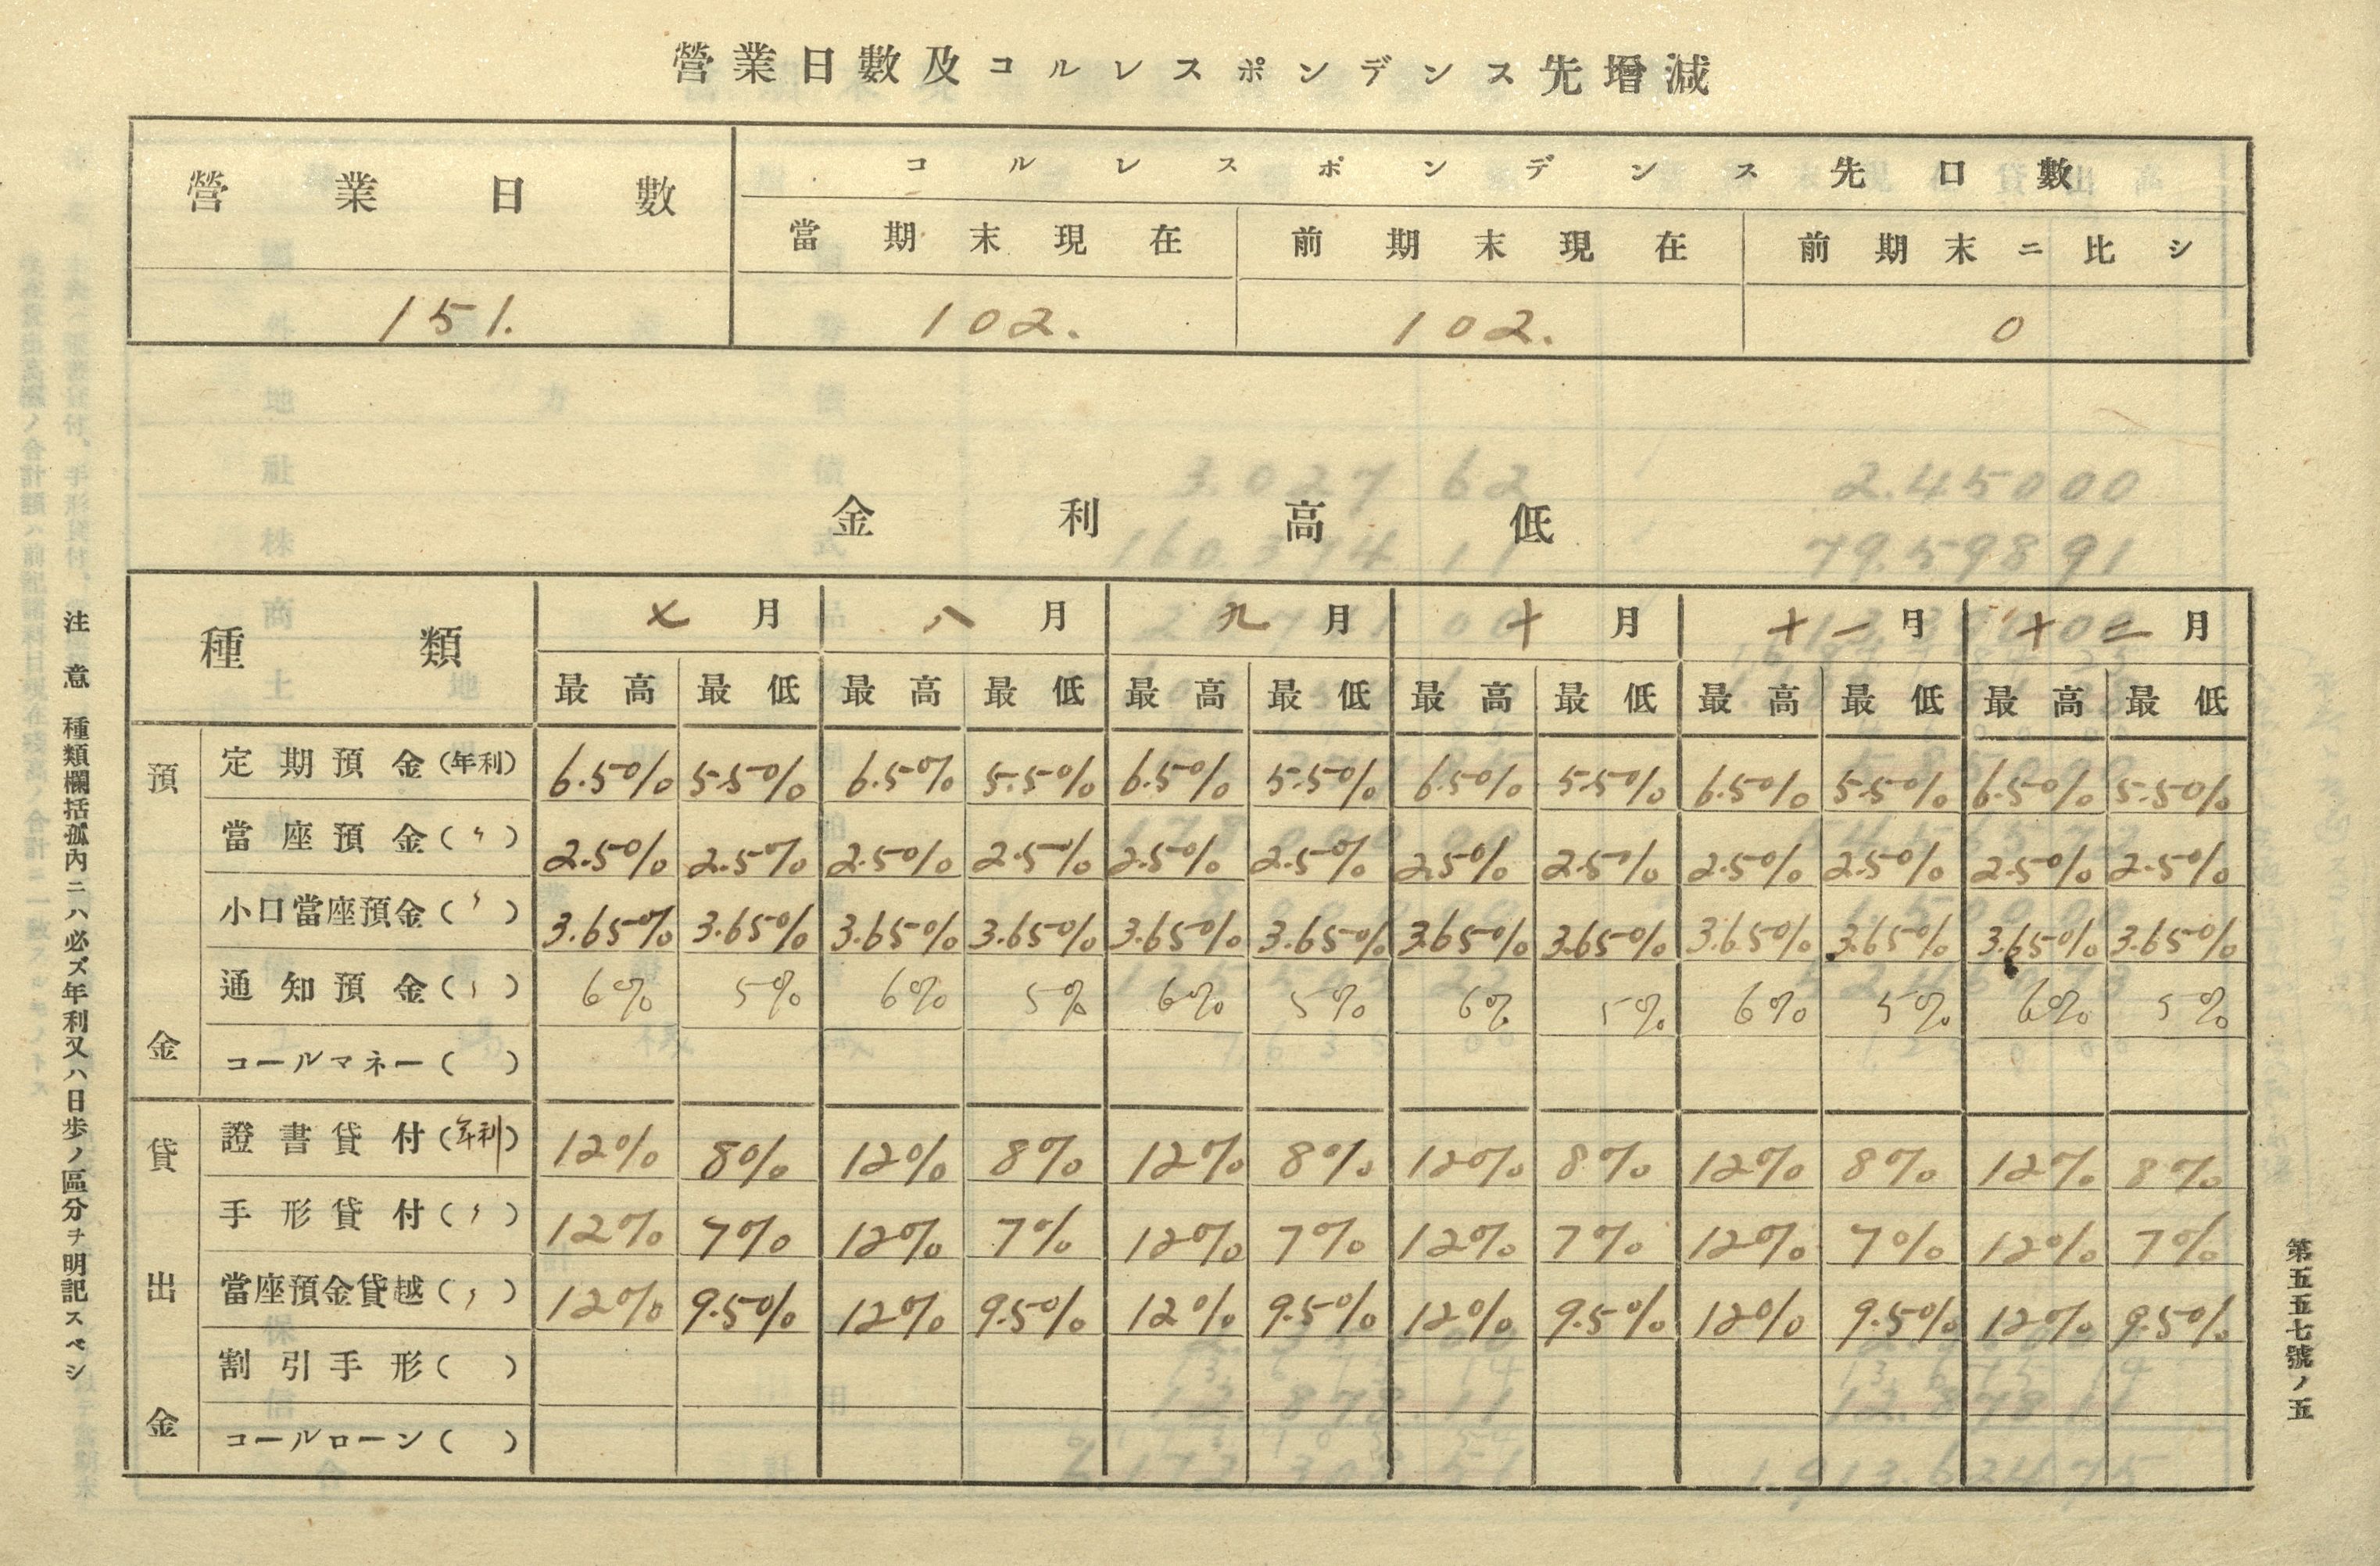 營業日數及コルレスポンデンス先增減
營業日數
コルレスポンデンス先口數
當期末現在 前期末現在 前期末ニ比シ
151. 102. 102. 0
金利高低
種類 七月 八月 九月 十月 十一月 十二月
最高 最低 最高 最低 最高 最低 最高 最低 最高 最低 最高 最低
預金
定期預金(年利) 6.50% 5.50% 6.50% 5.50% 6.50% 5.50% 6.50% 5.50% 6.50% 5.50% 6.50% 5.50%
當座預金(〃) 2.50% 2.50% 2.50% 2.50% 2.50% 2.50% 2.50% 2.50% 2.50% 2.50% 2.50% 2.50%
小口當座預金(〃) 3.650% 3.650% 3.650% 3.650% 3.650% 3.650% 3.650% 3.650% 3.650% 3.650% 3.650% 3.650%
通知預金(〃) 6% 5% 6% 5% 6% 5% 6% 5% 6% 5% 6% 5%
コールマネー( )
貸出金
證書貸付(年利) 12% 8% 12% 8% 12% 8% 12% 8% 12% 8% 12% 8%
手形貸付(〃) 12% 7% 12% 7% 12% 7% 12% 7% 12% 7% 12% 7%
當座預金貸越(〃) 12% 9.50% 12% 9.50% 12% 9.50% 12% 9.50% 12% 9.50% 12% 9.50%
割引手形( )
コールローン( )
注意 種類欄括孤內ニハ必ズ年利又ハ日歩ノ區分ヲ明記スベシ
第五五七號ノ五